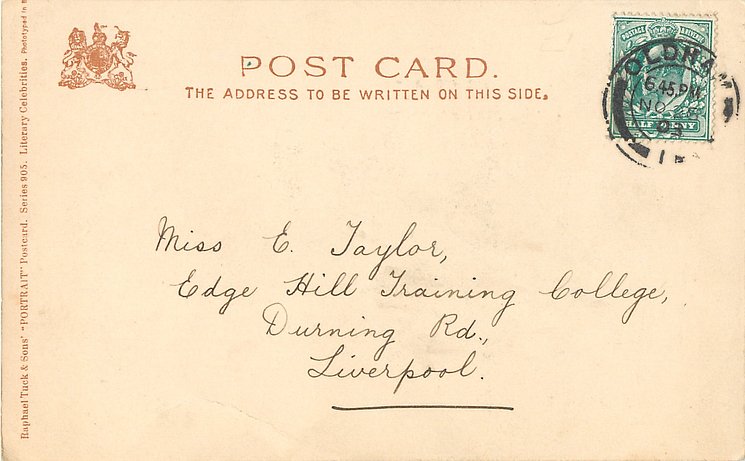 POST CARD.
THE ADDRESS TO BE WRITTEN ON THIS SIDE.
POSTAGE
HALFPENNY
OLDHAM
6 45 PM
NO
Miss E. Taylor,
Edge Hill Training College,
Durning Rd.,
Liverpool.
Raphael Tuck & Sons' "PORTRAIT" Postcard. Series 905. Literary Celebrities. Phototyped in